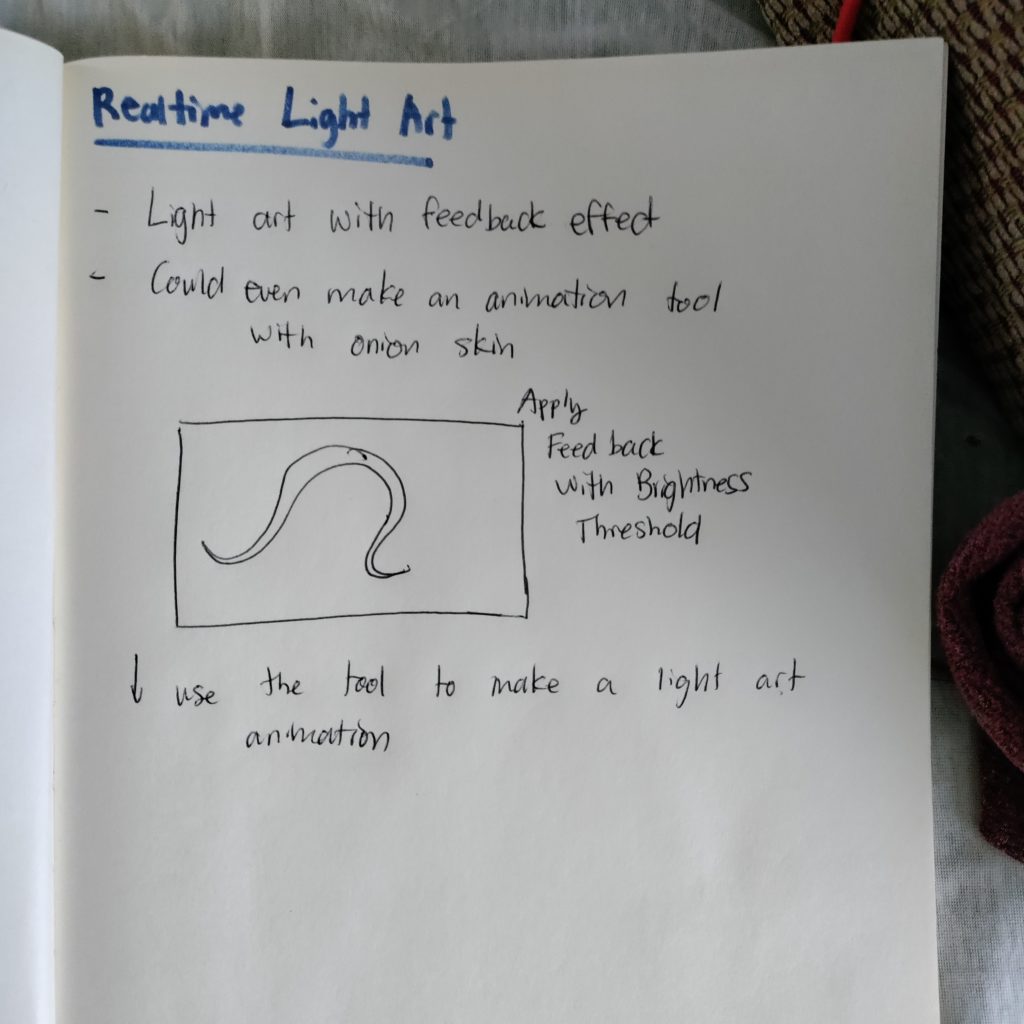 Realtime Light Art
- Light art with feedback effect
- Could even make an animation tool
with onion skin
Apply
Feed back
with Brightness
Threshold
↓ use the tool to make a light art
animation